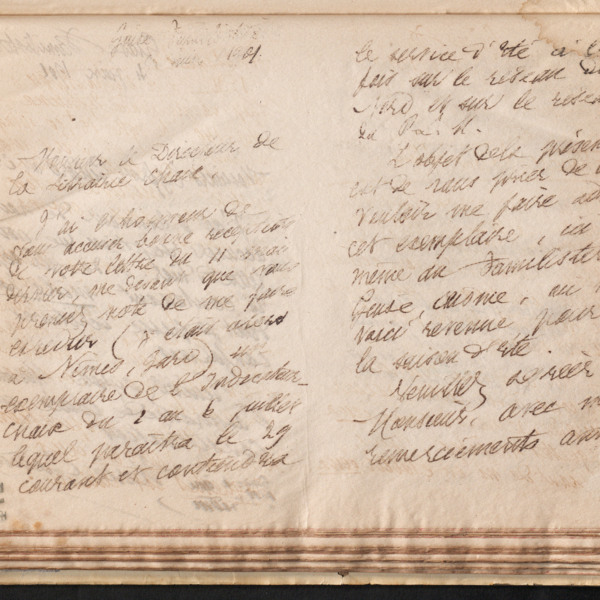 Guise Familistère
1901.
Monsieur le Directeur de
la Librairie Chaix.
J'ai l'honneur de
vous accuser bonne réception
de votre lettre du 11 mai
dernier me disant que vous
prenez note de me faire
envoyer (j'étais alors
à Nîmes, Gard) un
exemplaire de l'Indicateur-
Chaix du 2 au 6 juillet
lequel paraîtra le 29
courant et contiendra
le service d'été à la
fois sur le réseau du
Nord et sur le rése
du P. L. M.
L'objet de la présen
est de vous prier de
vouloir me faire ad
cet exemplaire, ici
même au Familistèr
Guise, Aisne, où
voici revenue pour
la saison d'été.
Veuillez agréer
Monsieur, avec m
remerciements